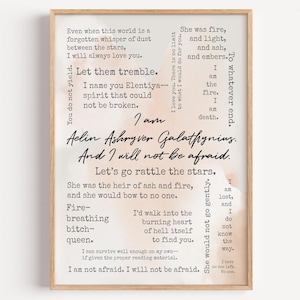 Even when this world is a
forgotten whisper of dust
between the stars,
I will always love you.
She was fire,
and light,
and ash,
and embers.
To whatever end.
You do not yield.
I love you. There is no limit
to what I would do for you.
Let them tremble.
I name you Elentiya—
spirit that could
not be broken.
I am
the
fire.
I am
death.
I am
Aelin Ashryver Galathynius.
And I will not be afraid.
Let's go rattle the stars.
She was the heir of ash and fire,
and she would bow to no one.
Fire-
breathing
bitch-
queen.
I'd walk into the
burning heart
of hell itself
to find you.
She would not go gently.
I am
lost,
and I
do not
know the
way.
I can survive well enough on my own—
if given the proper reading material.
I am not afraid. I will not be afraid.